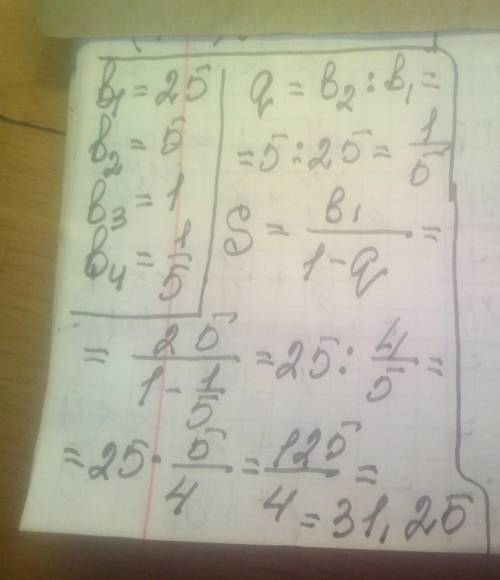 b₁ = 25
b₂ = 5
b₃ = 1
b₄ = 1/5
q = b₂ : b₁ =
= 5 : 25 = 1/5
S = b₁/(1-q) =
= 25/(1 - 1/5) = 25 : 4/5 =
= 25 · 5/4 = 125/4 =
= 31,25